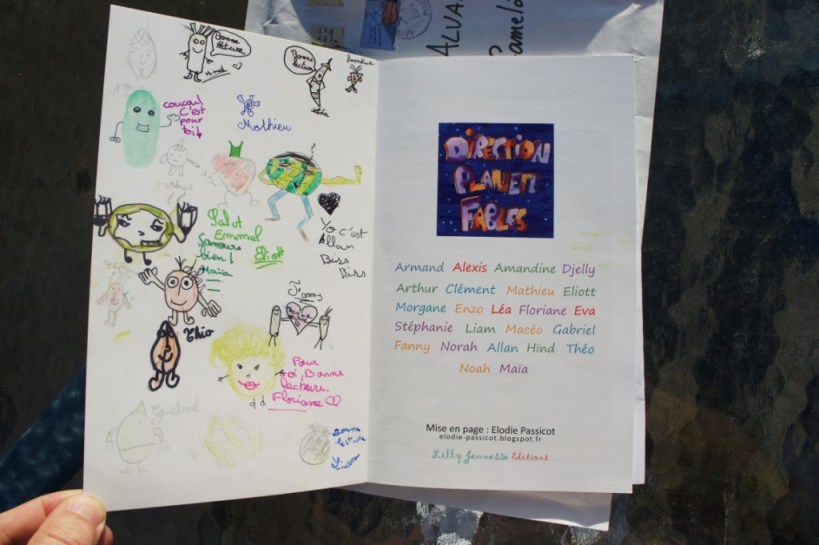 ALVA
Camelo
Bonne
lecture
coucou!
C'est
pour
toi!
Mathieu
Salut
Emmel
Savoure
bien!
Maïa
Eliott
Yo c'est
Allan
Biss
Biss
Fanny
Théo
Pour
toi, Bonne
lecture.
Floriane
Gabriel
Bonne
lecture
DIRECTION
PLANETE
FABLES
Armand Alexis Amandine Djelly
Arthur Clément Mathieu Eliott
Morgane Enzo Léa Floriane Eva
Stéphanie Liam Macéo Gabriel
Fanny Norah Allan Hind Théo
Noah Maïa
Mise en page : Elodie Passicot
elodie-passicot.blogspot.fr
Lilly Jeunesse Editions